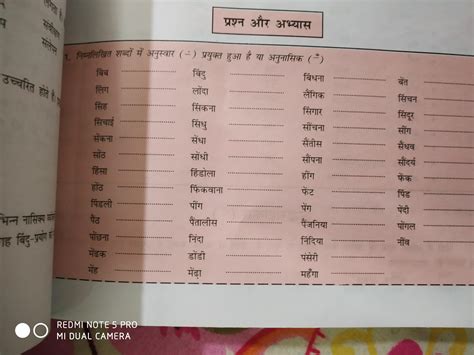 प्रश्न और अभ्यास
1. निम्नलिखित शब्दों में अनुस्वार (–ं) प्रयुक्त हुआ है या अनुनासिक (–ँ)
बिंब बिंदु बिंधना बेंत
लिंग लोंदा लैंगिक सिंचन
सिंह सिंकना सिंगार सिंदूर
सिंचाई सिंधु सींचना सींग
सेंकना सेंधा सैंतीस सैंधव
सोंठ सोंधी सौंपना सौंदर्य
हिंसा हिंडोला हींग फेंक
होंठ फिंकवाना फेंट पिंड
पिंडली पींग पेंग पेंदी
पैंठ पैंतालीस पैंजनिया पोंगल
पोंछना निंदा निंदिया नींव
मेंढक डोंडी पंसेरी
मेंह मेंढ़ा महँगा
उच्चरित होते हैं
भिन्न नासिक्य
बिंदु-प्रयोग
REDMI NOTE 5 PRO
MI DUAL CAMERA